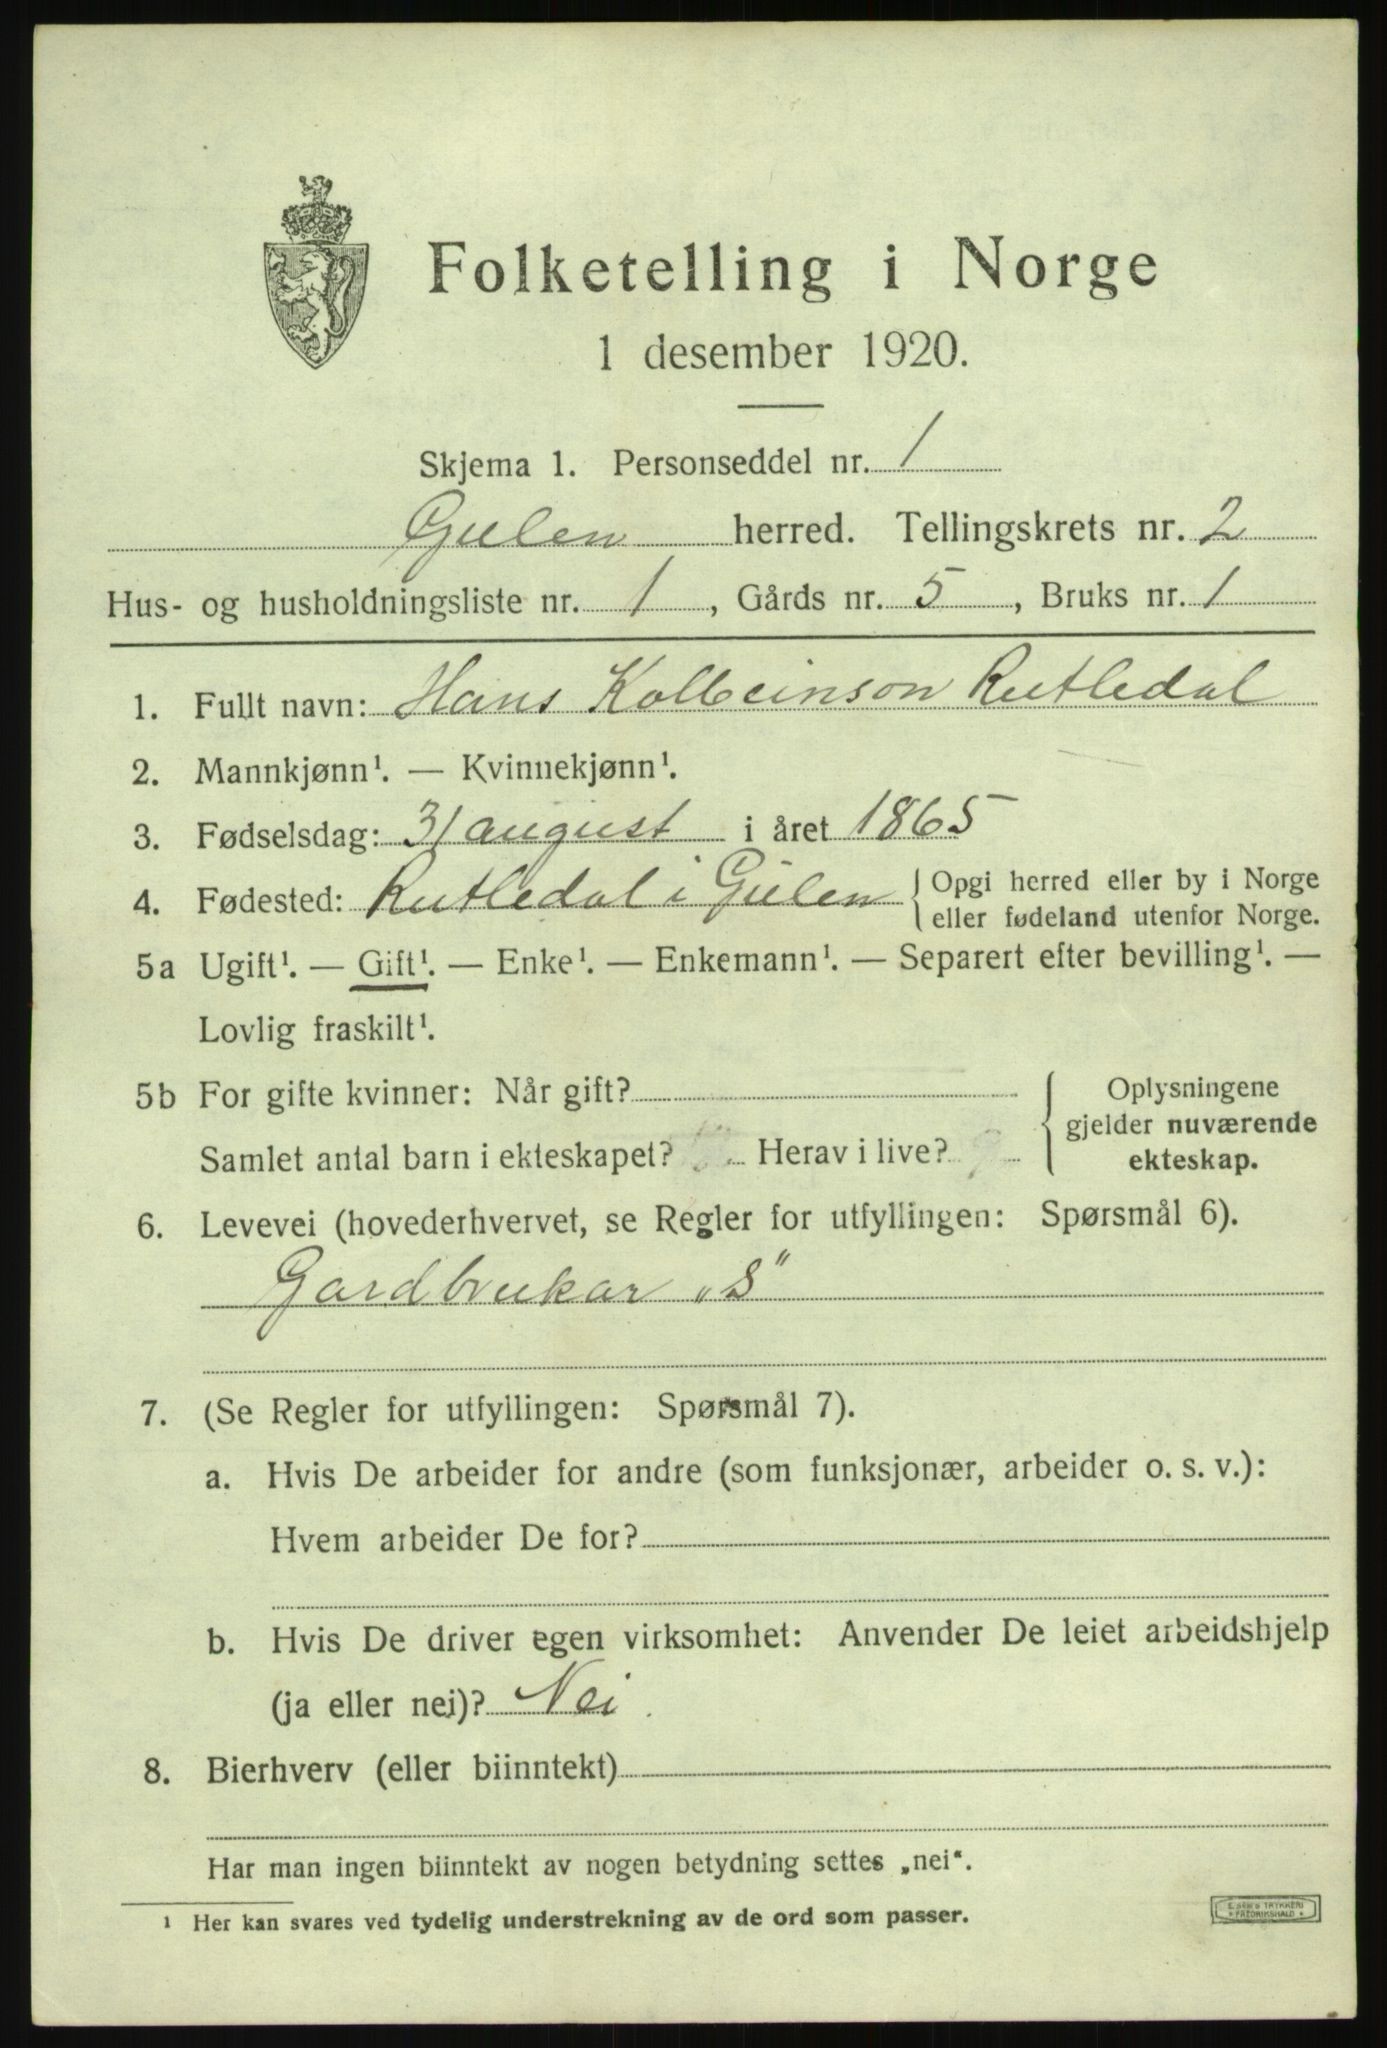 Folketelling i Norge
1 desember 1920.
Skjema 1. Personseddel nr. 1
Gulen herred. Tellingskrets nr. 2
Hus- og husholdningsliste nr. 1, Gårds nr. 5, Bruks nr. 1
1. Fullt navn: Hans Kolbeinson Rutledal
2. Mannkjønn¹. — Kvinnekjønn¹.
3. Fødselsdag: 31 august i året 1865
4. Fødested: Rutledal i Gulen { Opgi herred eller by i Norge
eller fødeland utenfor Norge.
5a Ugift¹. — Gift¹. — Enke¹. — Enkemann¹. — Separert efter bevilling¹. —
Lovlig fraskilt¹.
5b For gifte kvinner: Når gift?
Samlet antal barn i ekteskapet? Herav i live?
Oplysningene
gjelder nuværende
ekteskap.
6. Levevei (hovederhvervet, se Regler for utfyllingen: Spørsmål 6).
Gardbrukar „S"
7. (Se Regler for utfyllingen: Spørsmål 7).
a. Hvis De arbeider for andre (som funksjonær, arbeider o. s. v.):
Hvem arbeider De for?
b. Hvis De driver egen virksomhet: Anvender De leiet arbeidshjelp
(ja eller nei)? Nei.
8. Bierhverv (eller biinntekt)
Har man ingen biinntekt av nogen betydning settes „nei".
¹ Her kan svares ved tydelig understrekning av de ord som passer.
TRYKKERI
FREDRIKSHALD